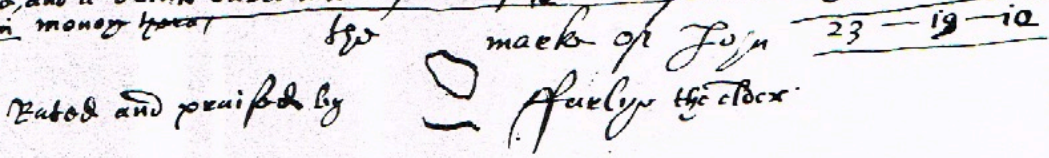 in money
the marke of John 23 — 19 — 10
Rated and praised by ffarlye the elder